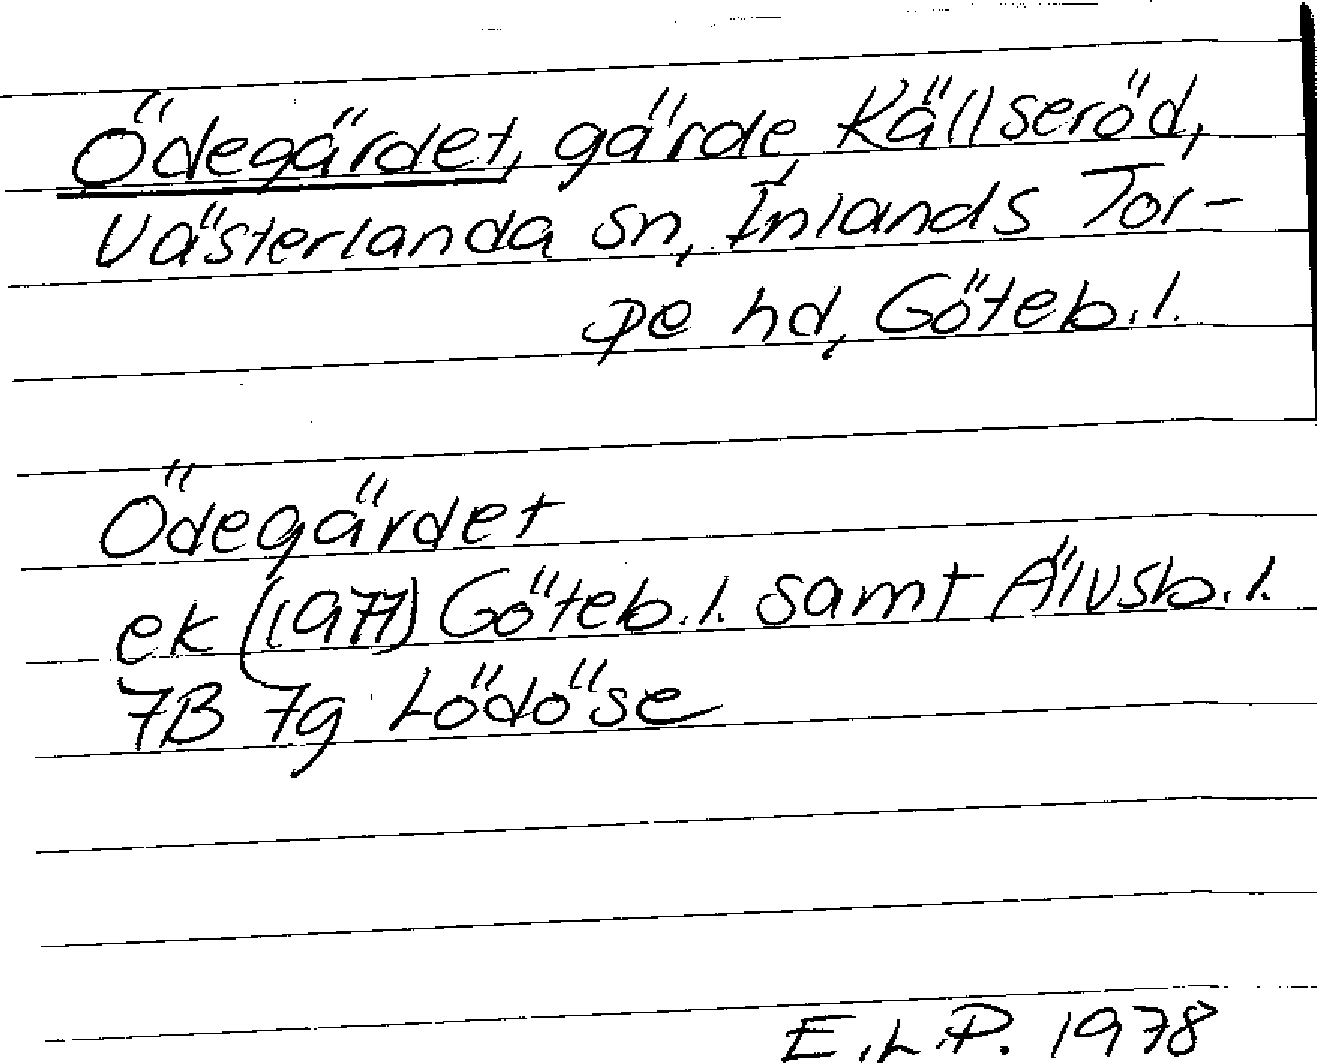 Ödegärdet, gärde, Källseröd,
Västerlanda sn, Inlands Tor-
pe hd, Göteb.l.
Ödegärdet
ek (1977) Göteb.l. samt Älvsb.l.
7B 7g Lödöse
E.L.P. 1978